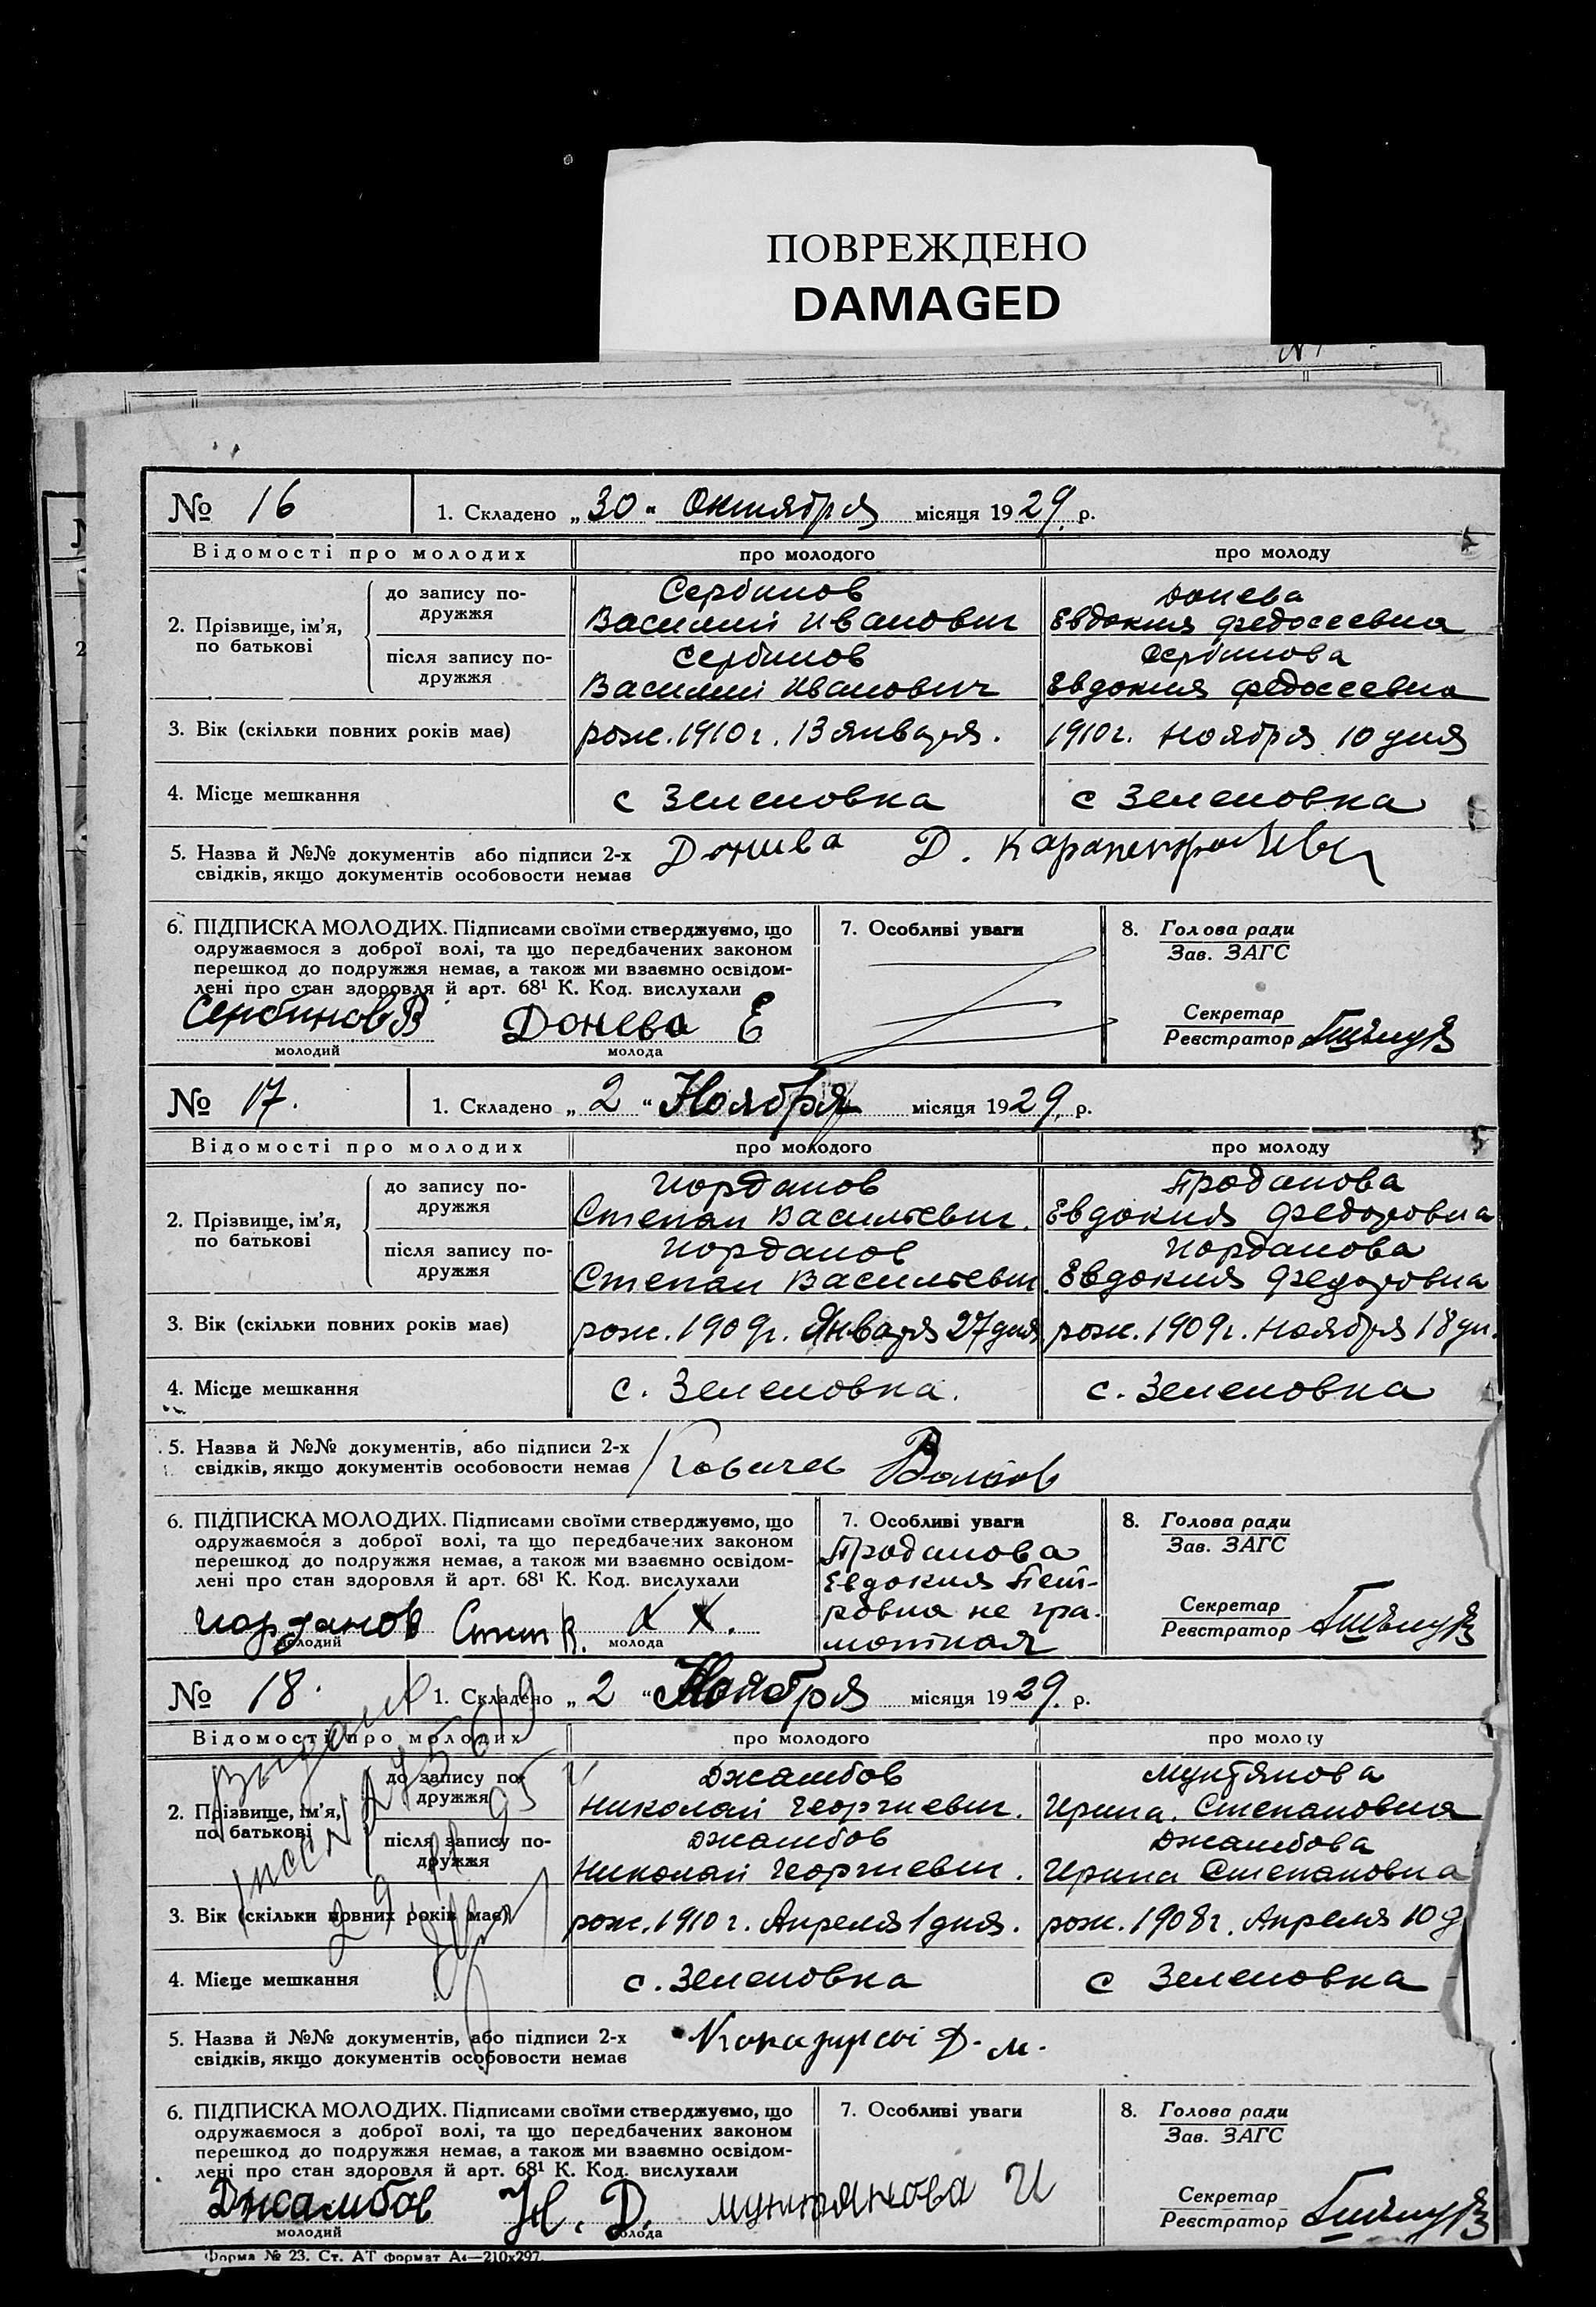 ПОВРЕЖДЕНО
DAMAGED
№ 16 1. Складено „ 30 “ Октября місяця 1929 р.
Відомості про молодих про молодого про молоду
2. Прізвище, ім'я, по батькові
до запису подружжя
Сербинов
Василий Иванович
Донева
Евдокия Федосеевна
після запису подружжя
Сербинов
Василий Иванович
Сербинова
Евдокия Федосеевна
3. Вік (скільки повних років має) рож. 1910 г. 13 января. 1910 г. Ноября 10 дня
4. Місце мешкання с Зеленовка с Зеленовка
5. Назва й №№ документів або підписи 2-х
свідків, якщо документів особовости немає
Д.
6. ПІДПИСКА МОЛОДИХ. Підписами своїми стверджуємо, що
одружаємося з доброї волі, та що передбачених законом
перешкод до подружжя немає, а також ми взаємно освідом-
лені про стан здоровля й арт. 68¹ К. Код. вислухали
Сербинов В Донева Е
молодий молода
7. Особливі уваги
8. Голова ради
Зав. ЗАГС
Секретар
Реєстратор
№ 17. 1. Складено „ 2 “ Ноября місяця 1929 р.
Відомості про молодих про молодого про молоду
2. Прізвище, ім'я, по батькові
до запису подружжя
Иорданов
Степан Васильевич.
Проданова
Евдокия Федоровна
після запису подружжя
Иорданов
Степан Васильевич
Иорданова
Евдокия Федоровна
3. Вік (скільки повних років має) рож. 1909 г. Января 27 дня рож. 1909 г. Ноября 18 дн.
4. Місце мешкання с. Зеленовка. с. Зеленовка
5. Назва й №№ документів, або підписи 2-х
свідків, якщо документів особовости немає
6. ПІДПИСКА МОЛОДИХ. Підписами своїми стверджуємо, що
одружаємося з доброї волі, та що передбачених законом
перешкод до подружжя немає, а також ми взаємно освідом-
лені про стан здоровля й арт. 68¹ К. Код. вислухали
Иорданов Х Х.
молодий молода
7. Особливі уваги
Проданова
Евдокия Пет-
ровна не гра-
мотная
8. Голова ради
Зав. ЗАГС
Секретар
Реєстратор
№ 18. 1. Складено „ 2 “ Ноября місяця 1929 р.
Відомості про молодих про молодого про молоду
2. Прізвище, ім'я, по батькові
до запису подружжя
Джамбов
Николай Георгиевич.
Мунтянова
Ирина. Степановна
після запису подружжя
Джамбов
Николай Георгиевич.
Джамбова
Ирина Степановна
3. Вік (скільки повних років має) рож. 1910 г. Апреля 1 дня. рож. 1908 г. Апреля 10 д
4. Місце мешкання с. Зеленовка с Зеленовка
5. Назва й №№ документів, або підписи 2-х
свідків, якщо документів особовости немає
Д. м.
6. ПІДПИСКА МОЛОДИХ. Підписами своїми стверджуємо, що
одружаємося з доброї волі, та що передбачених законом
перешкод до подружжя немає, а також ми взаємно освідом-
лені про стан здоровля й арт. 68¹ К. Код. вислухали
Джамбов Н. Д. мунтянова И
молодий молода
7. Особливі уваги
8. Голова ради
Зав. ЗАГС
Секретар
Реєстратор
Форма № 23. Ст. АТ формат А₄—210x297.